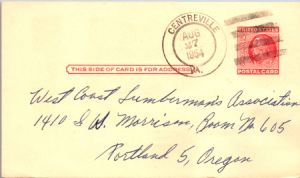 CENTREVILLE
AUG
27
1954
VA.
THIS SIDE OF CARD IS FOR ADDRESS
POSTAL CARD
West Coast Lumberman's Association
1410 S W. Morrison, Room No 605
Portland 5, Oregon